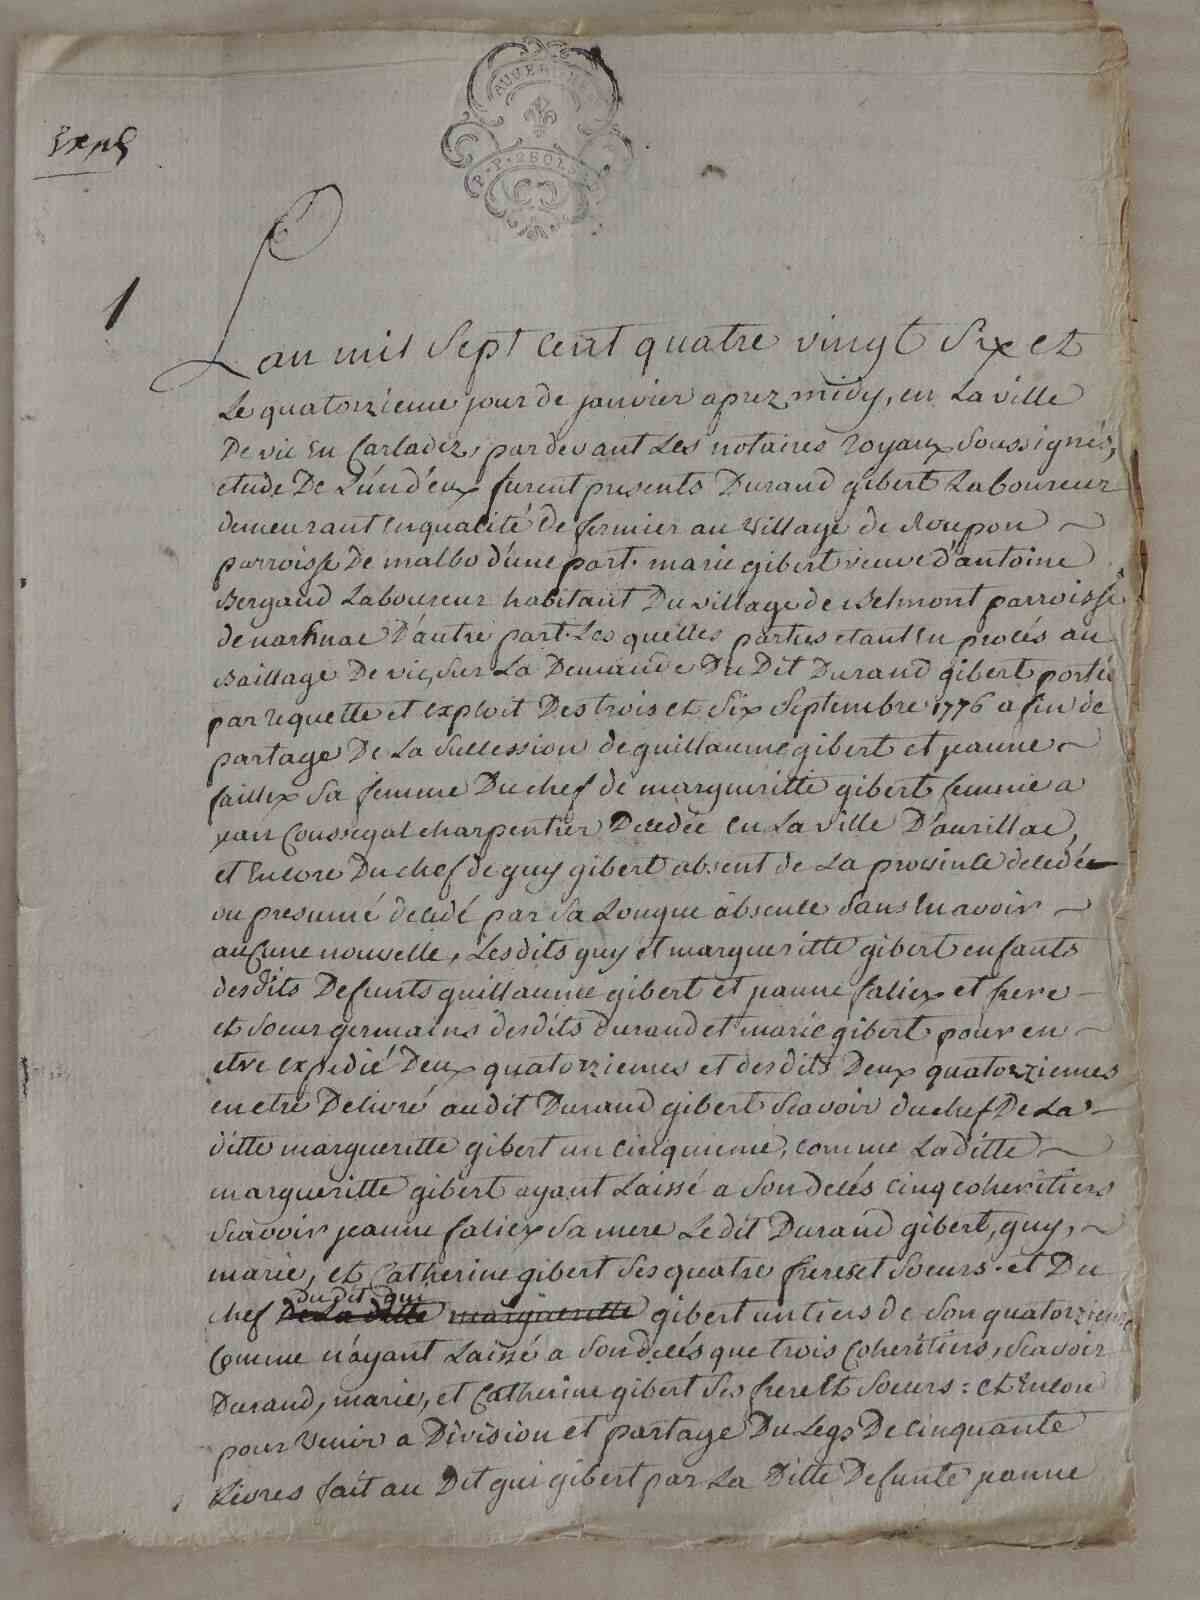 AUVERGNE
P.P. 2 SOLS
Expé
1
Lan mil sept cent quatre vingt six et
le quatorzieme jour de janvier aprez midy, en la ville
de vic en Carladez, pardevant les notaires royaux soussignés,
etude de l'un d'eux furent presents Durand gibert laboureur
demeurant en qualité de fermier au village de Roupon
parroisse de malbo d'une part. marie gibert veuve d'antoine
Bergaud laboureur habitant du village de Belmont parroisse
de narhnac d'autre part. Les quelles parties etant en procés au
Baillage de vic, sur la demande du dit Durand gibert portée
par requette et exploit des trois et six septembre 1776 a fin de
partage de la succession de guillaume gibert et jeanne
faillex sa femme du chef de margueritte gibert femme a
jean Coussegal charpentier decedée en la ville d'aurillac,
et encore du chef de guy gibert absent de la province decedé
ou presumé decedé par sa longue absence sans en avoir
aucune nouvelle, lesdits guy et margueritte gibert enfants
desdits defunts guillaume gibert et jeanne faliex et frere
et soeur germains desdits durand et marie gibert pour en
etre expedié deux quatorziemes et desdits deux quatorziemes
en etre delivré audit Durand gibert scavoir du chef de la
ditte margueritte gibert un cinquieme, comme laditte
margueritte gibert ayant laissé a son decés cinq coheritiers
scavoir jeanne faliex sa mere ledit Durand gibert, guy,
marie, et Catherine gibert ses quatre freres et soeurs. et du
dudit gui
chef de la ditte margueritte gibert un tiers de son quatorzieme
Comme n'ayant laissé a son decés que trois coheritiers, scavoir
Durand, marie, et Catherine gibert ses frere et soeurs : et encore
pour venir a division et partage du legs de cinquante
livres fait au dit gui gibert par la ditte defunte jeanne